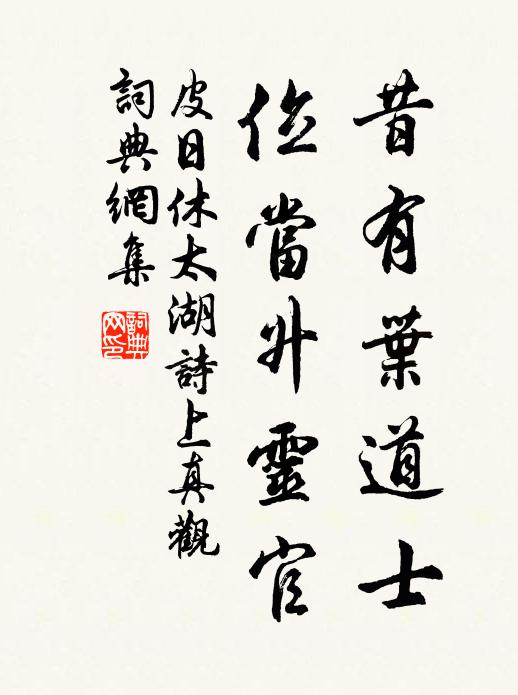 昔有葉道士
位當升靈官
皮日休太湖詩上真觀
詞典網集
詞典
网印